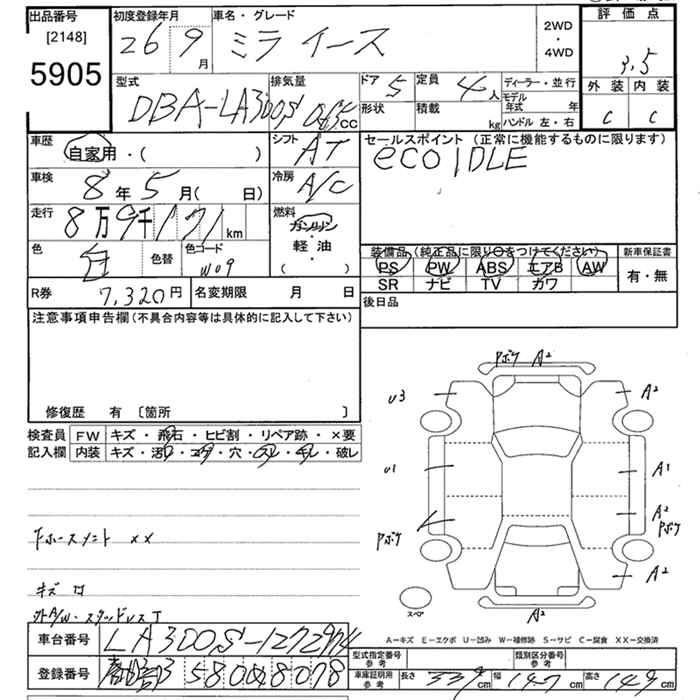 出品番号 初度登録年月 車名・グレード 評価点
[2148] 26 9月 ミライース 2WD・4WD 3.5
5905 外装 内装
C C
型式 排気量 ドア 5 定員 4人 ディーラー・並行
DBA-LA300S 065cc 形状 積載 kg モデル年式 年
ハンドル 左・右
車歴 自家用・( ) シフト AT セールスポイント (正常に機能するものに限ります)
eco IDLE
車検 8年5月( 日) 冷房 A/C
走行 8万9千171km 燃料 ガソリン
軽油
( ・ )
色 白 色替 色コード W09
装備品 (純正品に限り○をつけてください) 新車保証書
PS PW ABS エアB AW 有・無
SR ナビ TV カワ
R券 7,320円 名変期限 月 日 後日品
注意事項申告欄(不具合内容等は具体的に記入して下さい)
修復歴 有 [箇所 ]
検査員 FW キズ・飛石・ヒビ割・リペア跡・×要
記入欄 内装 キズ・汚れ・コゲ・穴・スレ・破レ
Pボケ A2
U3 A2
U1 A1
A2
Pボケ Pボケ
A2
スペア A2
キズ
A-キズ E-エクボ U-凹み W-補修跡 S-サビ C-腐食 XX-交換済
車台番号 LA300S-1272974
登録番号 580
型式指定番号 参考 類別区分番号 参考
車庫証明用 参考 長さ 339cm 幅 147cm 高さ 149cm